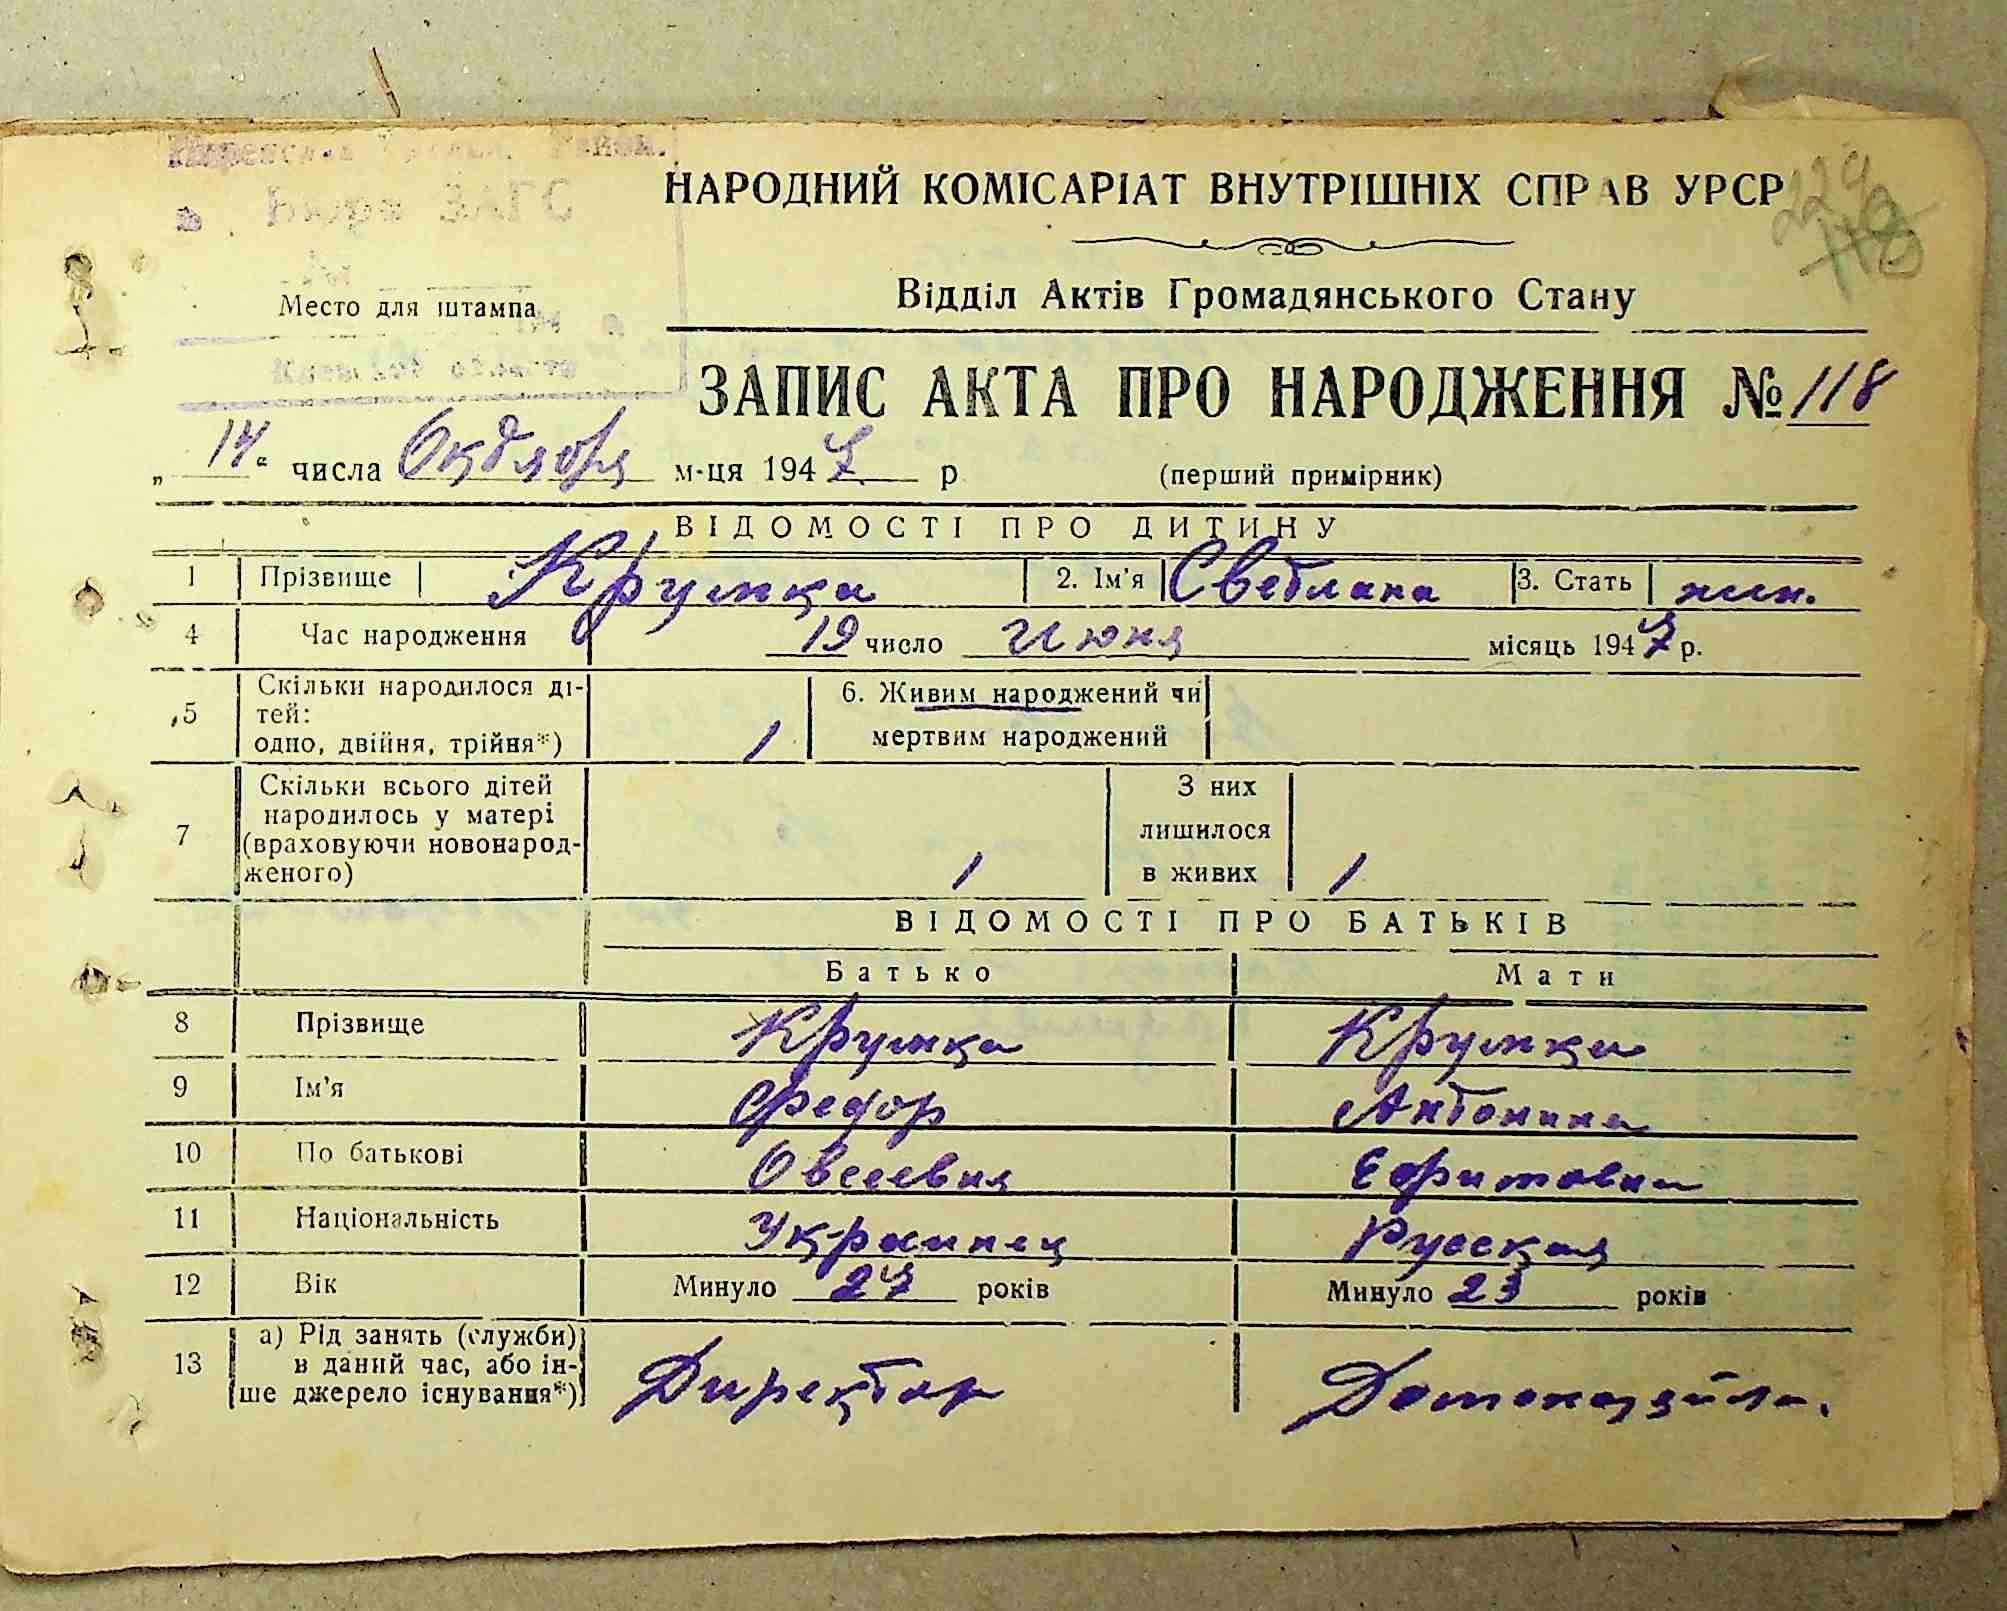 Район.
Бюро ЗАГС
НАРОДНИЙ КОМІСАРІАТ ВНУТРІШНІХ СПРАВ УРСР
229
118
Место для штампа
Відділ Актів Громадянського Стану
ЗАПИС АКТА ПРО НАРОДЖЕННЯ № 118
„14“ числа Октября м-ця 1947 р (перший примірник)
ВІДОМОСТІ ПРО ДИТИНУ
1 Прізвище Крумка 2. Ім'я Светлана 3. Стать жин.
4 Час народження 19 число Июня місяць 1947 р.
5 Скільки народилося ді-
тей:
одно, двійня, трійня*) 1
6. Живим народжений чи
мертвим народжений
7 Скільки всього дітей
народилось у матері
(враховуючи новонарод-
женого) 1
З них
лишилося
в живих 1
ВІДОМОСТІ ПРО БАТЬКІВ
Батько Мати
8 Прізвище Крумка Крумка
9 Ім'я Федор Антонина
10 По батькові Овсеевич Ефимовна
11 Національність Украинец Русская
12 Вік Минуло 27 років Минуло 23 років
13 а) Рід занять (служби)
в даний час, або ін-
ше джерело існування*) Директор Домохозяйка.